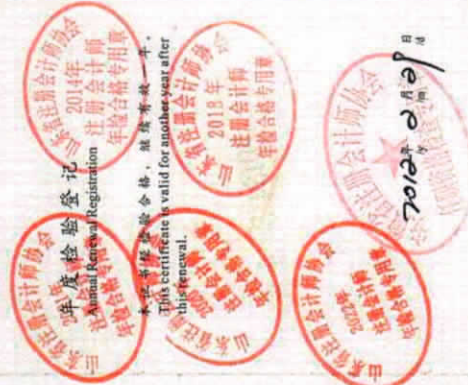 年度检验登记
Annual Renewal Registration
本证书经检验合格，继续有效一年。
This certificate is valid for another year after
this renewal.
山东省注册会计师协会
2014年
注册会计师
年检合格专用章
山东省注册会计师协会
2018年
注册会计师
年检合格专用章
山东省注册会计师协会
年检合格专用章
山东省注册会计师协会
注册会计师
年检合格专用章
山东省注册会计师协会
2022年
注册会计师
年检合格专用章
省注册会计师协会
2012年 2月 日